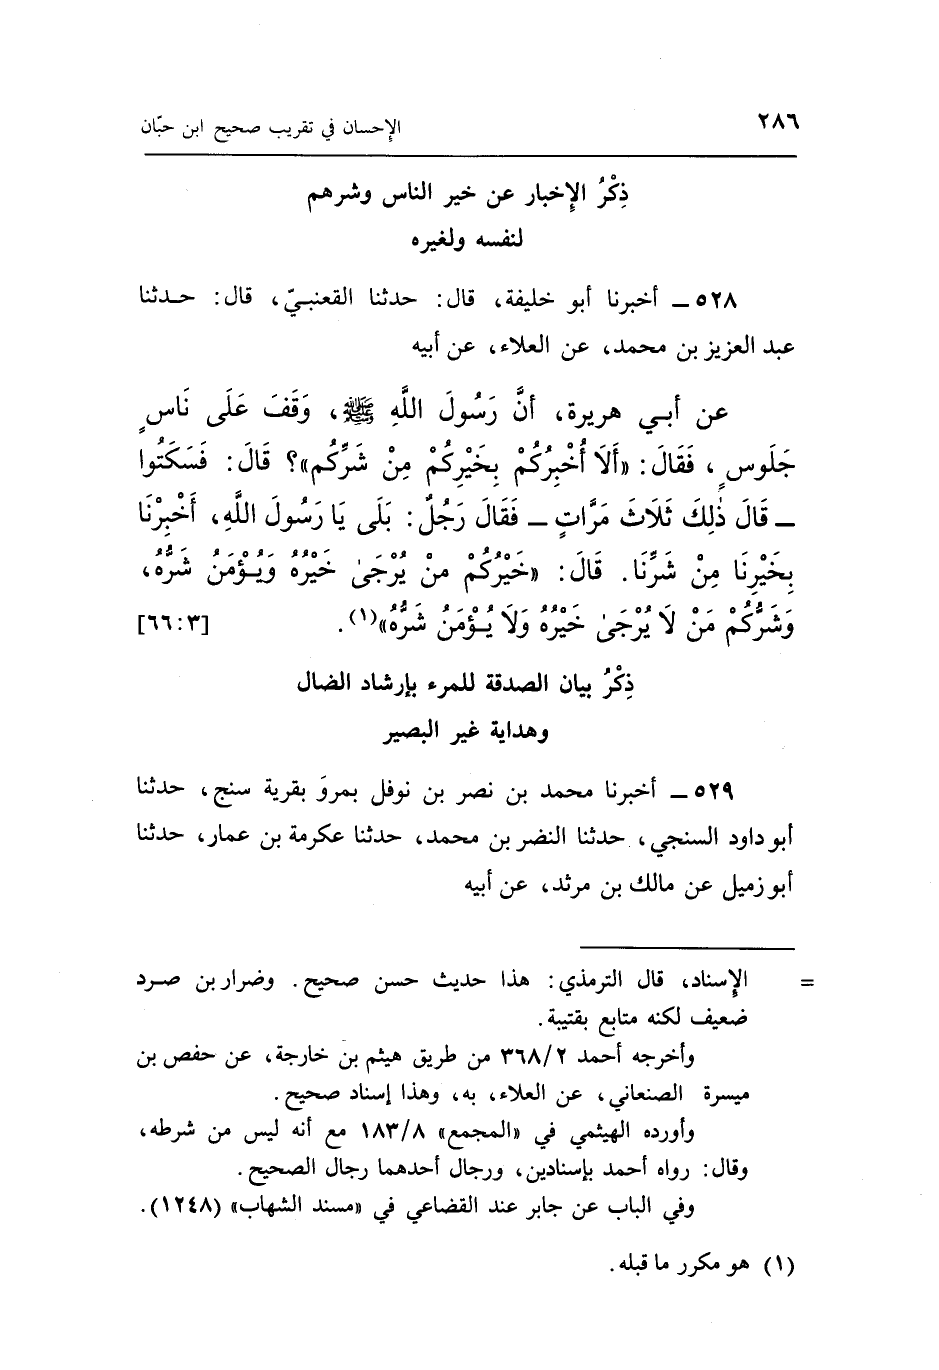 ٢٨٦ الإحسان في تقريب صحيح ابن حبّان
ذِكْرُ الإخبار عن خير الناس وشرهم
لنفسه ولغيره
٥٢٨ ـ أخبرنا أبو خليفة، قال: حدثنا القعنبيّ، قال: حدثنا
عبد العزيز بن محمد، عن العلاء، عن أبيه
عن أبي هريرة، أنَّ رَسُولَ اللَّهِ ﷺ، وَقَفَ عَلَى نَاسٍ
جَلُوسٍ، فَقَالَ: «أَلَا أُخْبِرُكُمْ بِخَيْرِكُمْ مِنْ شَرِّكُم»؟ قَالَ: فَسَكَتُوا
ـ قَالَ ذٰلِكَ ثَلَاثَ مَرَّاتٍ ـ فَقَالَ رَجُلٌ: بَلَى يَا رَسُولَ اللَّهِ، أَخْبِرْنَا
بِخَيْرِنَا مِنْ شَرِّنَا. قَالَ: «خَيْرُكُمْ منْ يُرْجَىٰ خَيْرُهُ وَيُؤْمَنُ شَرُّهُ،
وَشَرُّكُمْ مَنْ لَا يُرْجَىٰ خَيْرُهُ وَلَا يُؤْمَنُ شَرُّهُ»(١). [٣: ٦٦]
ذِكْرُ بيان الصدقة للمرء بإرشاد الضال
وهداية غير البصير
٥٢٩ ـ أخبرنا محمد بن نصر بن نوفل بمروَ بقرية سنج، حدثنا
أبو داود السنجي، حدثنا النضر بن محمد، حدثنا عكرمة بن عمار، حدثنا
أبو زميل عن مالك بن مرثد، عن أبيه
= الإسناد، قال الترمذي: هذا حديث حسن صحيح. وضرار بن صرد
ضعيف لكنه متابع بقتيبة.
وأخرجه أحمد ٣٦٨/٢ من طريق هيثم بن خارجة، عن حفص بن
ميسرة الصنعاني، عن العلاء، به، وهذا إسناد صحيح.
وأورده الهيثمي في «المجمع» ١٨٣/٨ مع أنه ليس من شرطه،
وقال: رواه أحمد بإسنادين، ورجال أحدهما رجال الصحيح.
وفي الباب عن جابر عند القضاعي في «مسند الشهاب» (١٢٤٨).
(١) هو مكرر ما قبله.